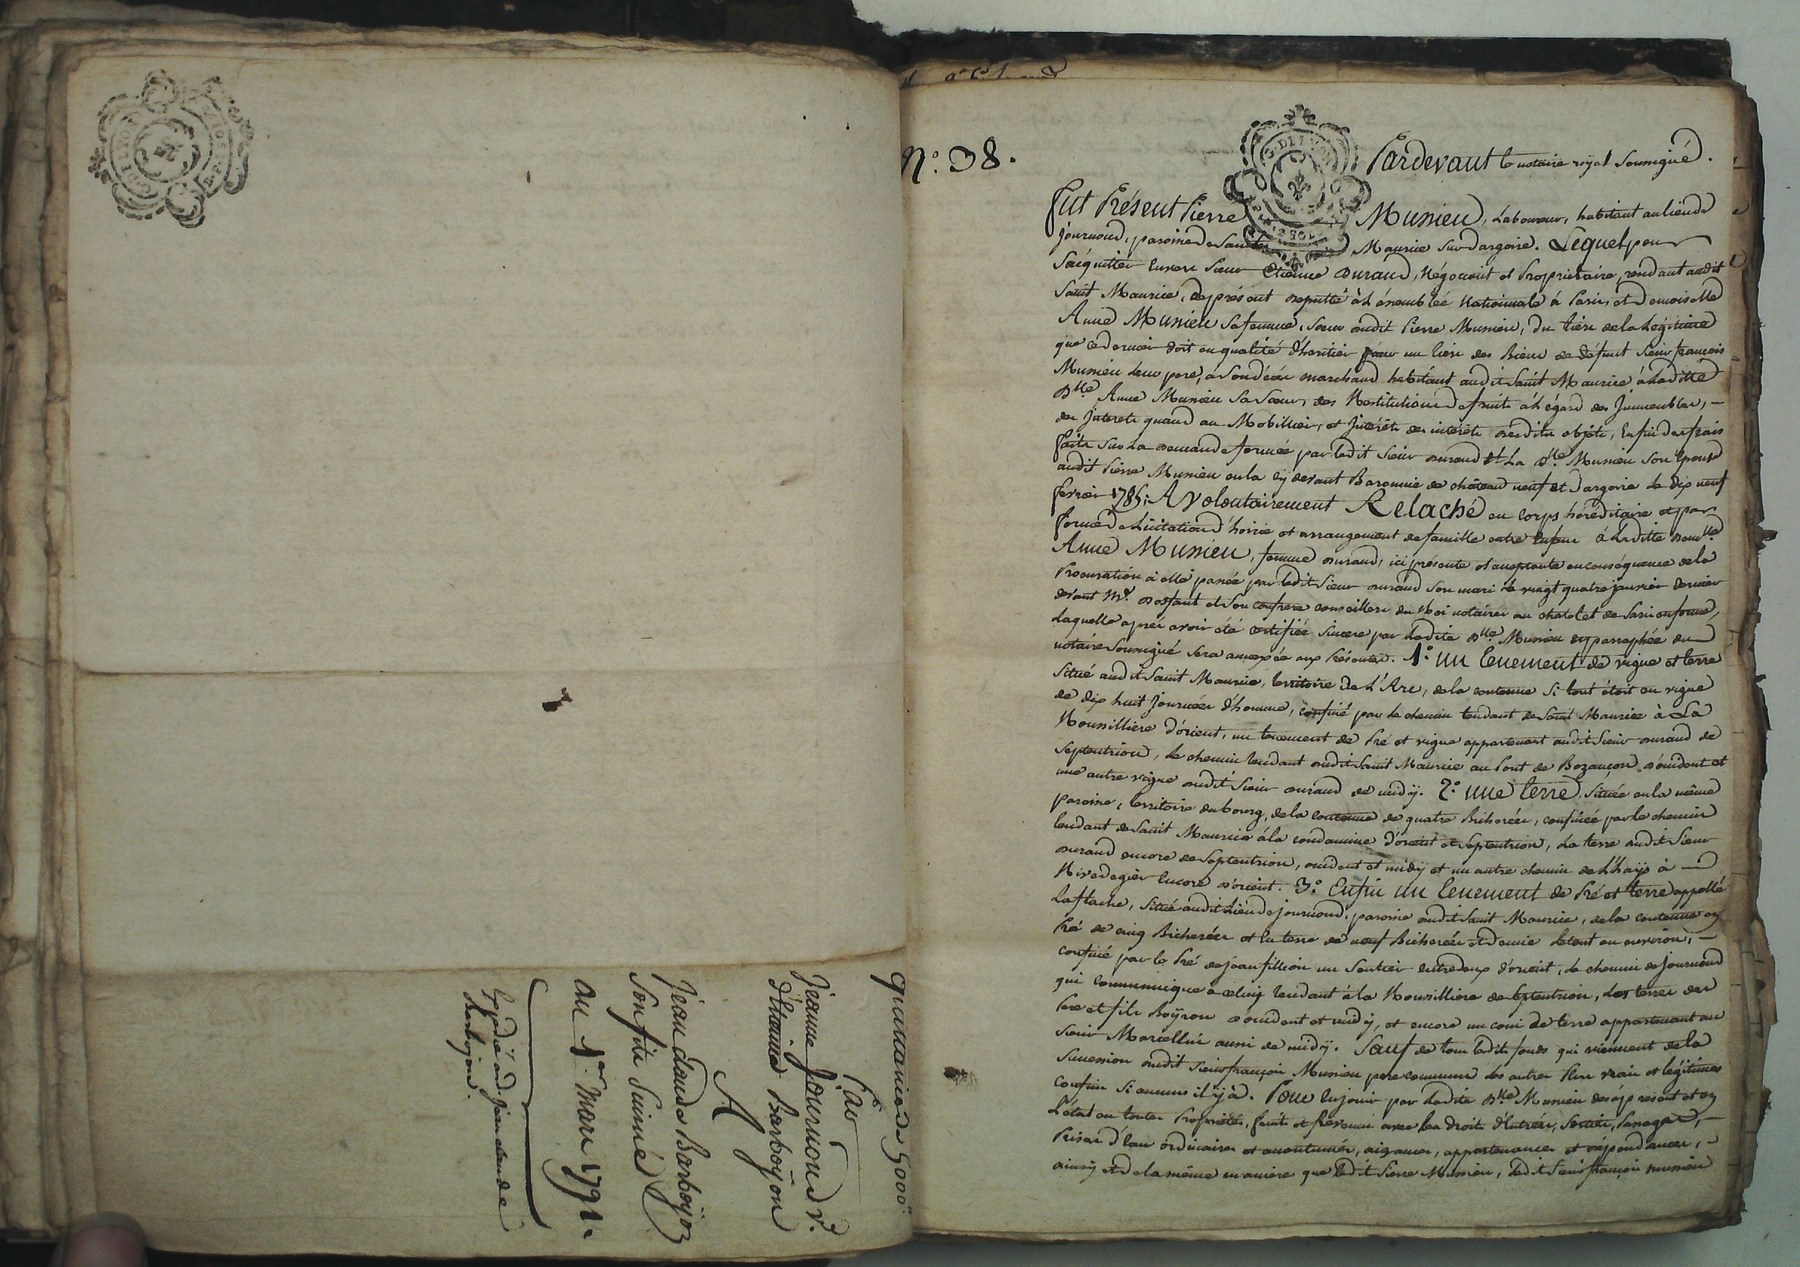 quittance de 5000#
Par
Jeanne Journoud v.e
d'Etienne Barboyon
A
Jean claude Barboyon
Son fils Puiné
du 1er mars 1791.
Expedié aud. jean claude
barboyon
N.o 38.
Pardevant le notaire royal Soussigné.
Fut Présent Pierre Mussieu, Laboureur, habitant au lieu de
Journoud, paroisse de Saint Maurice Sur dargoire. Lequel pour
S'acquitter Envers Sieur Etienne Durand, Négociant et Propriétaire, rendant audit
Saint Maurice, de présent deputté à L'assemblée Nationnale à Paris, et demoiselle
Anne Mussieu Sa femme, Sœur dudit Pierre Mussieu, du tiers de la Légitime
que ce dernier doit en qualité d'heritier pour un tiers des Biens de défunt Sieur françois
Mussieu leur pere, à Son décès marchand habitant audit Saint Maurice à Laditte
D.lle Anne Mussieu Sa Sœur, des Restitutions de fruits à L'égard des Immeubles,
des Interets quand au Mobillier, et Intérêts des intérêts desdits objets, Enfin des frais
faits Sur La demande formée par ledit Sieur durand et La D.lle Mussieu Son Epouse
audit Pierre Mussieu en la cy devant Baronnie de château neuf et Dargoire le dix neuf
fevrier 178 ; A Volontairement Relaché en corps héréditaire et par
forme de Licitation d'hoirie et arrangement de famille entre Enfans à Laditte Dem.lle
Anne Mussieu, femme durand, ici présente et acceptante en conséquence de la
Procuration à elle passée par ledit Sieur durand Son mari le vingt quatre janvier dernier
devant M.e dosfant et Son confrere conseillers du Roi notaires au chatelet de Paris en forme,
laquelle après avoir été certifiée Sincere par Ladite D.lle Mussieu et parraphée du
notaire Soussigné Sera annexée aux Présentes. 1.o un tenement de vigne et terre
Situé audit Saint Maurice, territoire de L'Arc, de la contenue Si tout étoit en vigne
de dix huit Journées d'homme, confiné par le chemin tendant de Saint Maurice à La
Roussilliere d'orient, un tenement de Pré et vigne appartenant audit Sieur durand de
Septentrion, le chemin tendant dudit Saint Maurice au Pont de Bozançon d'occident et
une autre vigne dudit Sieur durand de midÿ. 2.o une terre Située en la même
paroisse, territoire du bourg, de la contenue de quatre Bicherées, confinée par le chemin
tendant de Saint Maurice à la condamine d'orient et Septentrion, La terre dudit Sieur
durand encore de Septentrion, occident et midÿ et un autre chemin de L'haÿs à
Rivedegier Encore d'orient. 3.o Enfin un tenement de Pré et terre appellé
Laflache, Situé audit Lieu de journoud, paroisse dudit Saint Maurice, de la contenue en
Pré de cinq Bicherées et En terre de neuf Bicherées et demie letout ou environ,
confiné par le Pré de jean fillion un Sentier entredeux d'orient, le chemin de journoud
qui communique à celuy tendant à la Roussilliere de Septentrion, Les terres des
Pere et fils Boÿron d'occident et midÿ, et encore un coin de terre appartenant au
Sieur Marcellin aussi de midÿ. Sauf de tous lesdits fonds qui viennent de la
Succession dudit Sieur françois Mussieu pere commun les autres Plus vrais et légitimes
confins Si aucuns il y à. Pour En jouir par Ladite D.lle Mussieu dès à present et en
L'état en toute Propriétés, fruits et Revenus avec les droit d'Entrées, Sorties, Passages,
Prises d'Eau ordinaires et accoutumés, aizances, appartenances et dépendances,
ainsy et de la même maniere que ledit Pierre Mussieu, ledit Sieur françois mussieu